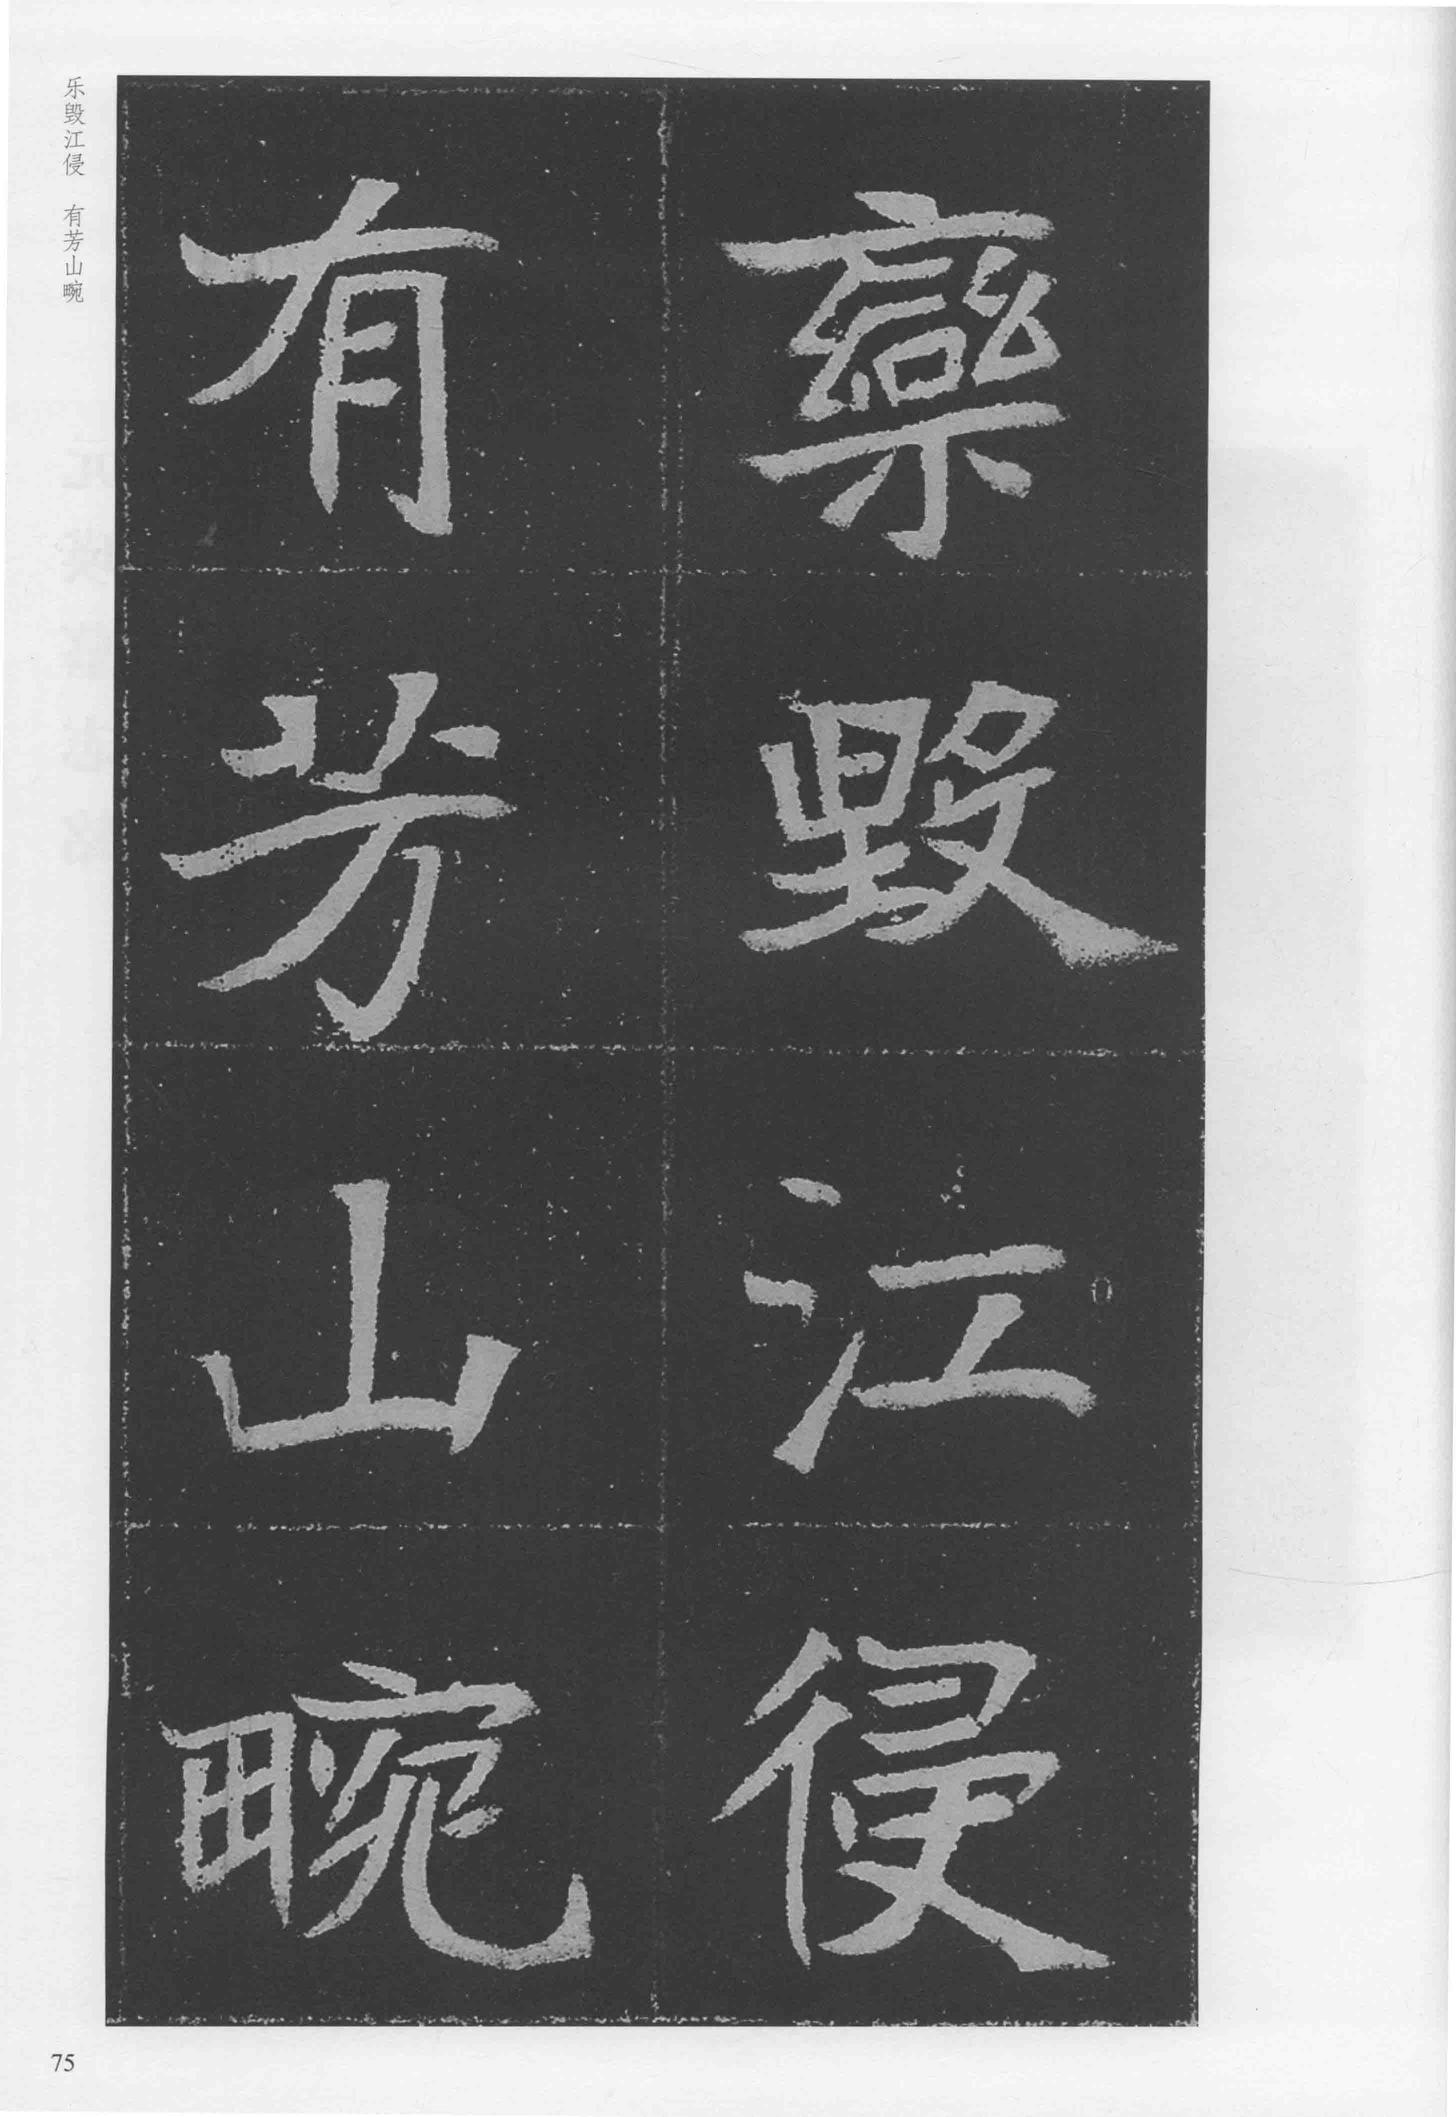 欒毀江侵
有芳山畹
乐毁江侵　有芳山畹
75